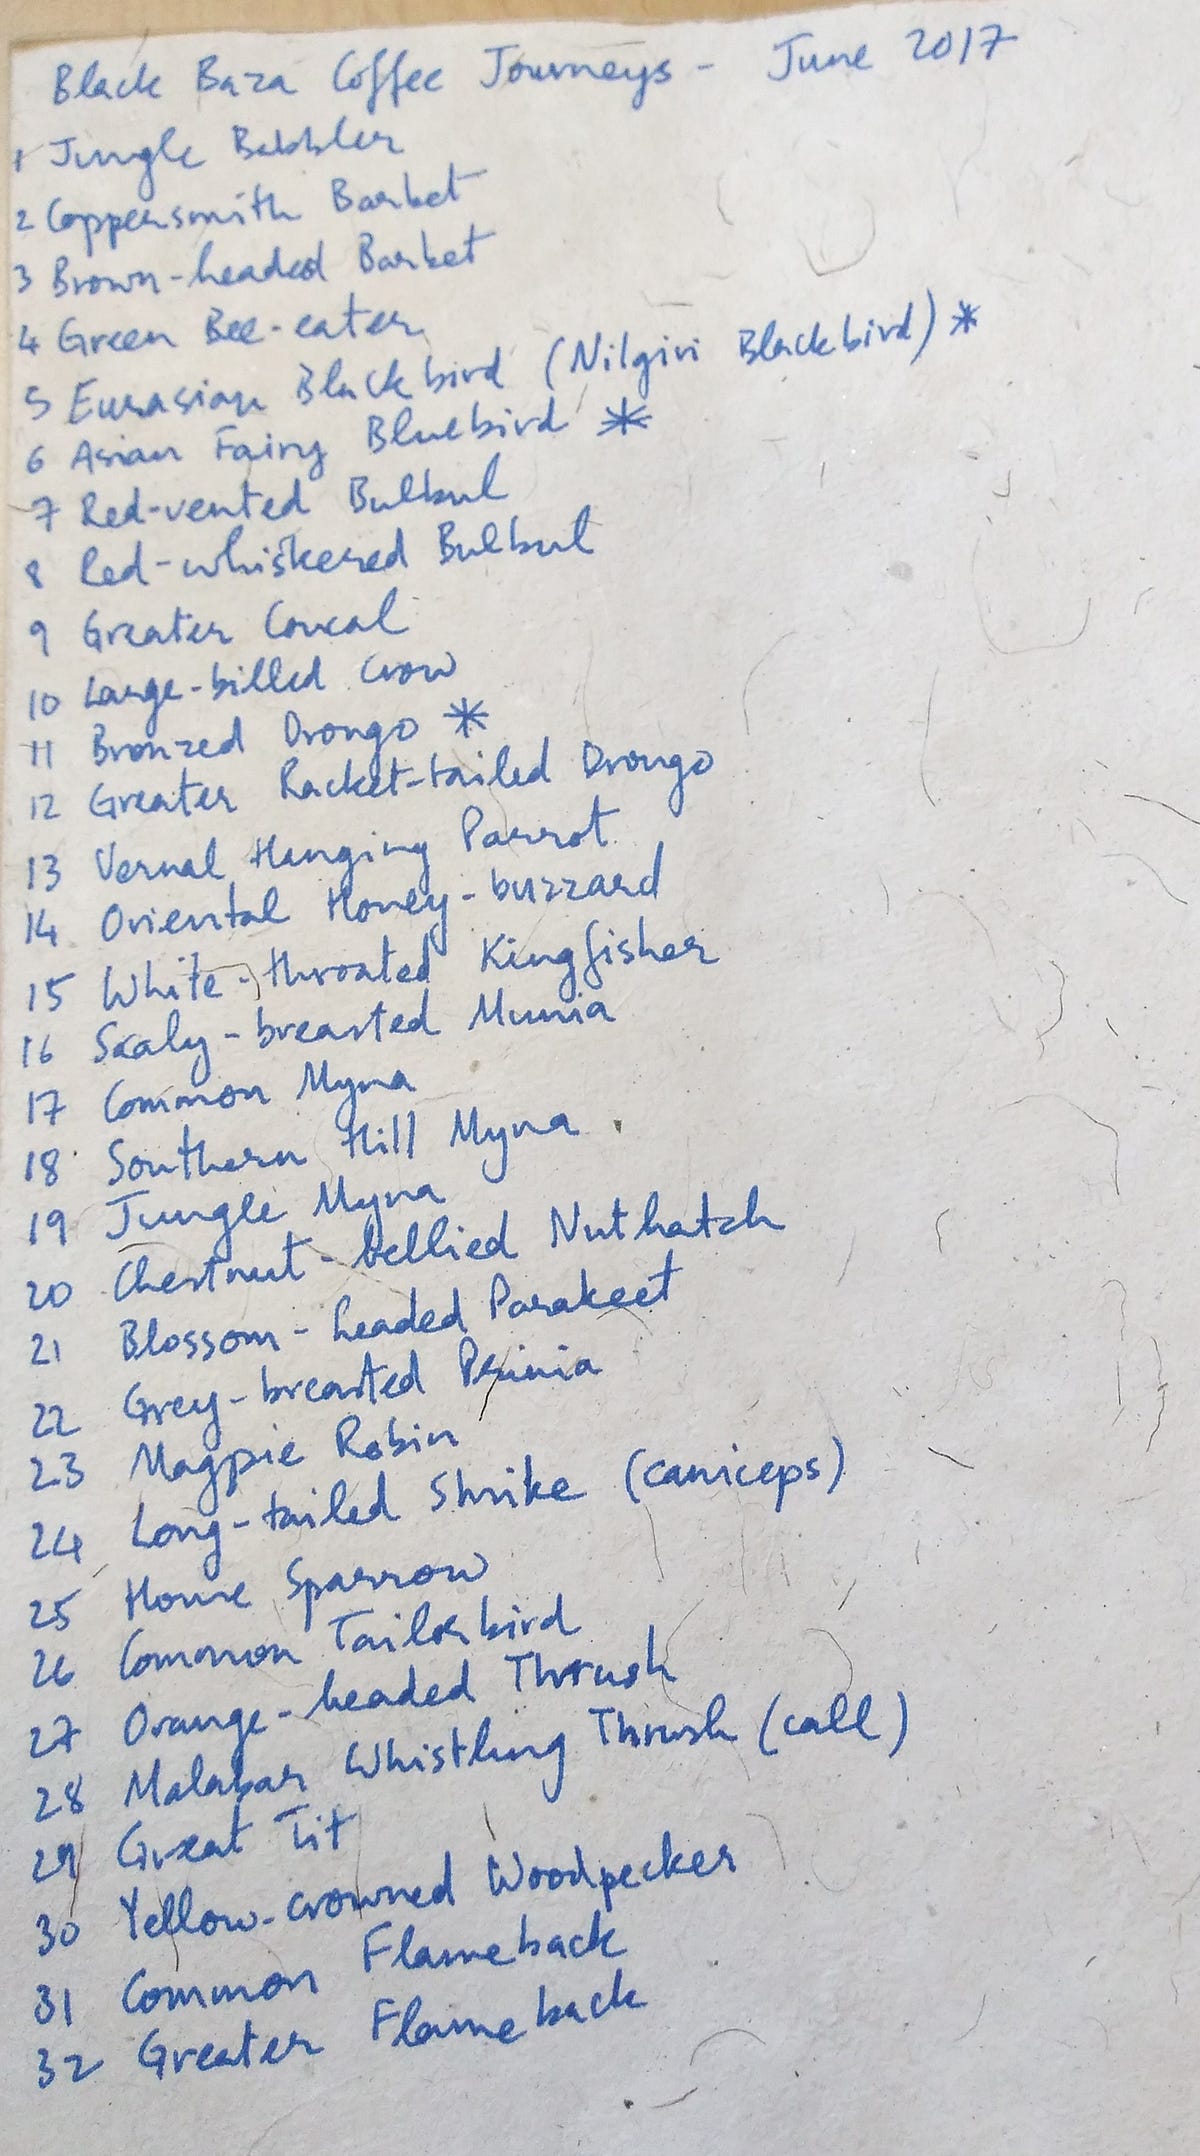 Black Baza Coffee Journeys - June 2017
1 Jungle Babbler
2 Coppersmith Barbet
3 Brown-headed Barbet
4 Green Bee-eater
5 Eurasian Blackbird (Nilgiri Blackbird) *
6 Asian Fairy Bluebird *
7 Red-vented Bulbul
8 Red-whiskered Bulbul
9 Greater Coucal
10 Large-billed Crow
11 Bronzed Drongo *
12 Greater Racket-tailed Drongo
13 Vernal Hanging Parrot
14 Oriental Honey-buzzard
15 White-throated Kingfisher
16 Scaly-breasted Munia
17 Common Myna
18 Southern Hill Myna
19 Jungle Myna
20 Chestnut-bellied Nuthatch
21 Blossom-headed Parakeet
22 Grey-breasted Prinia
23 Magpie Robin
24 Long-tailed Shrike (caniceps)
25 House Sparrow
26 Common Tailorbird
27 Orange-headed Thrush
28 Malabar Whistling Thrush (call)
29 Great Tit
30 Yellow-crowned Woodpecker
31 Common Flameback
32 Greater Flameback